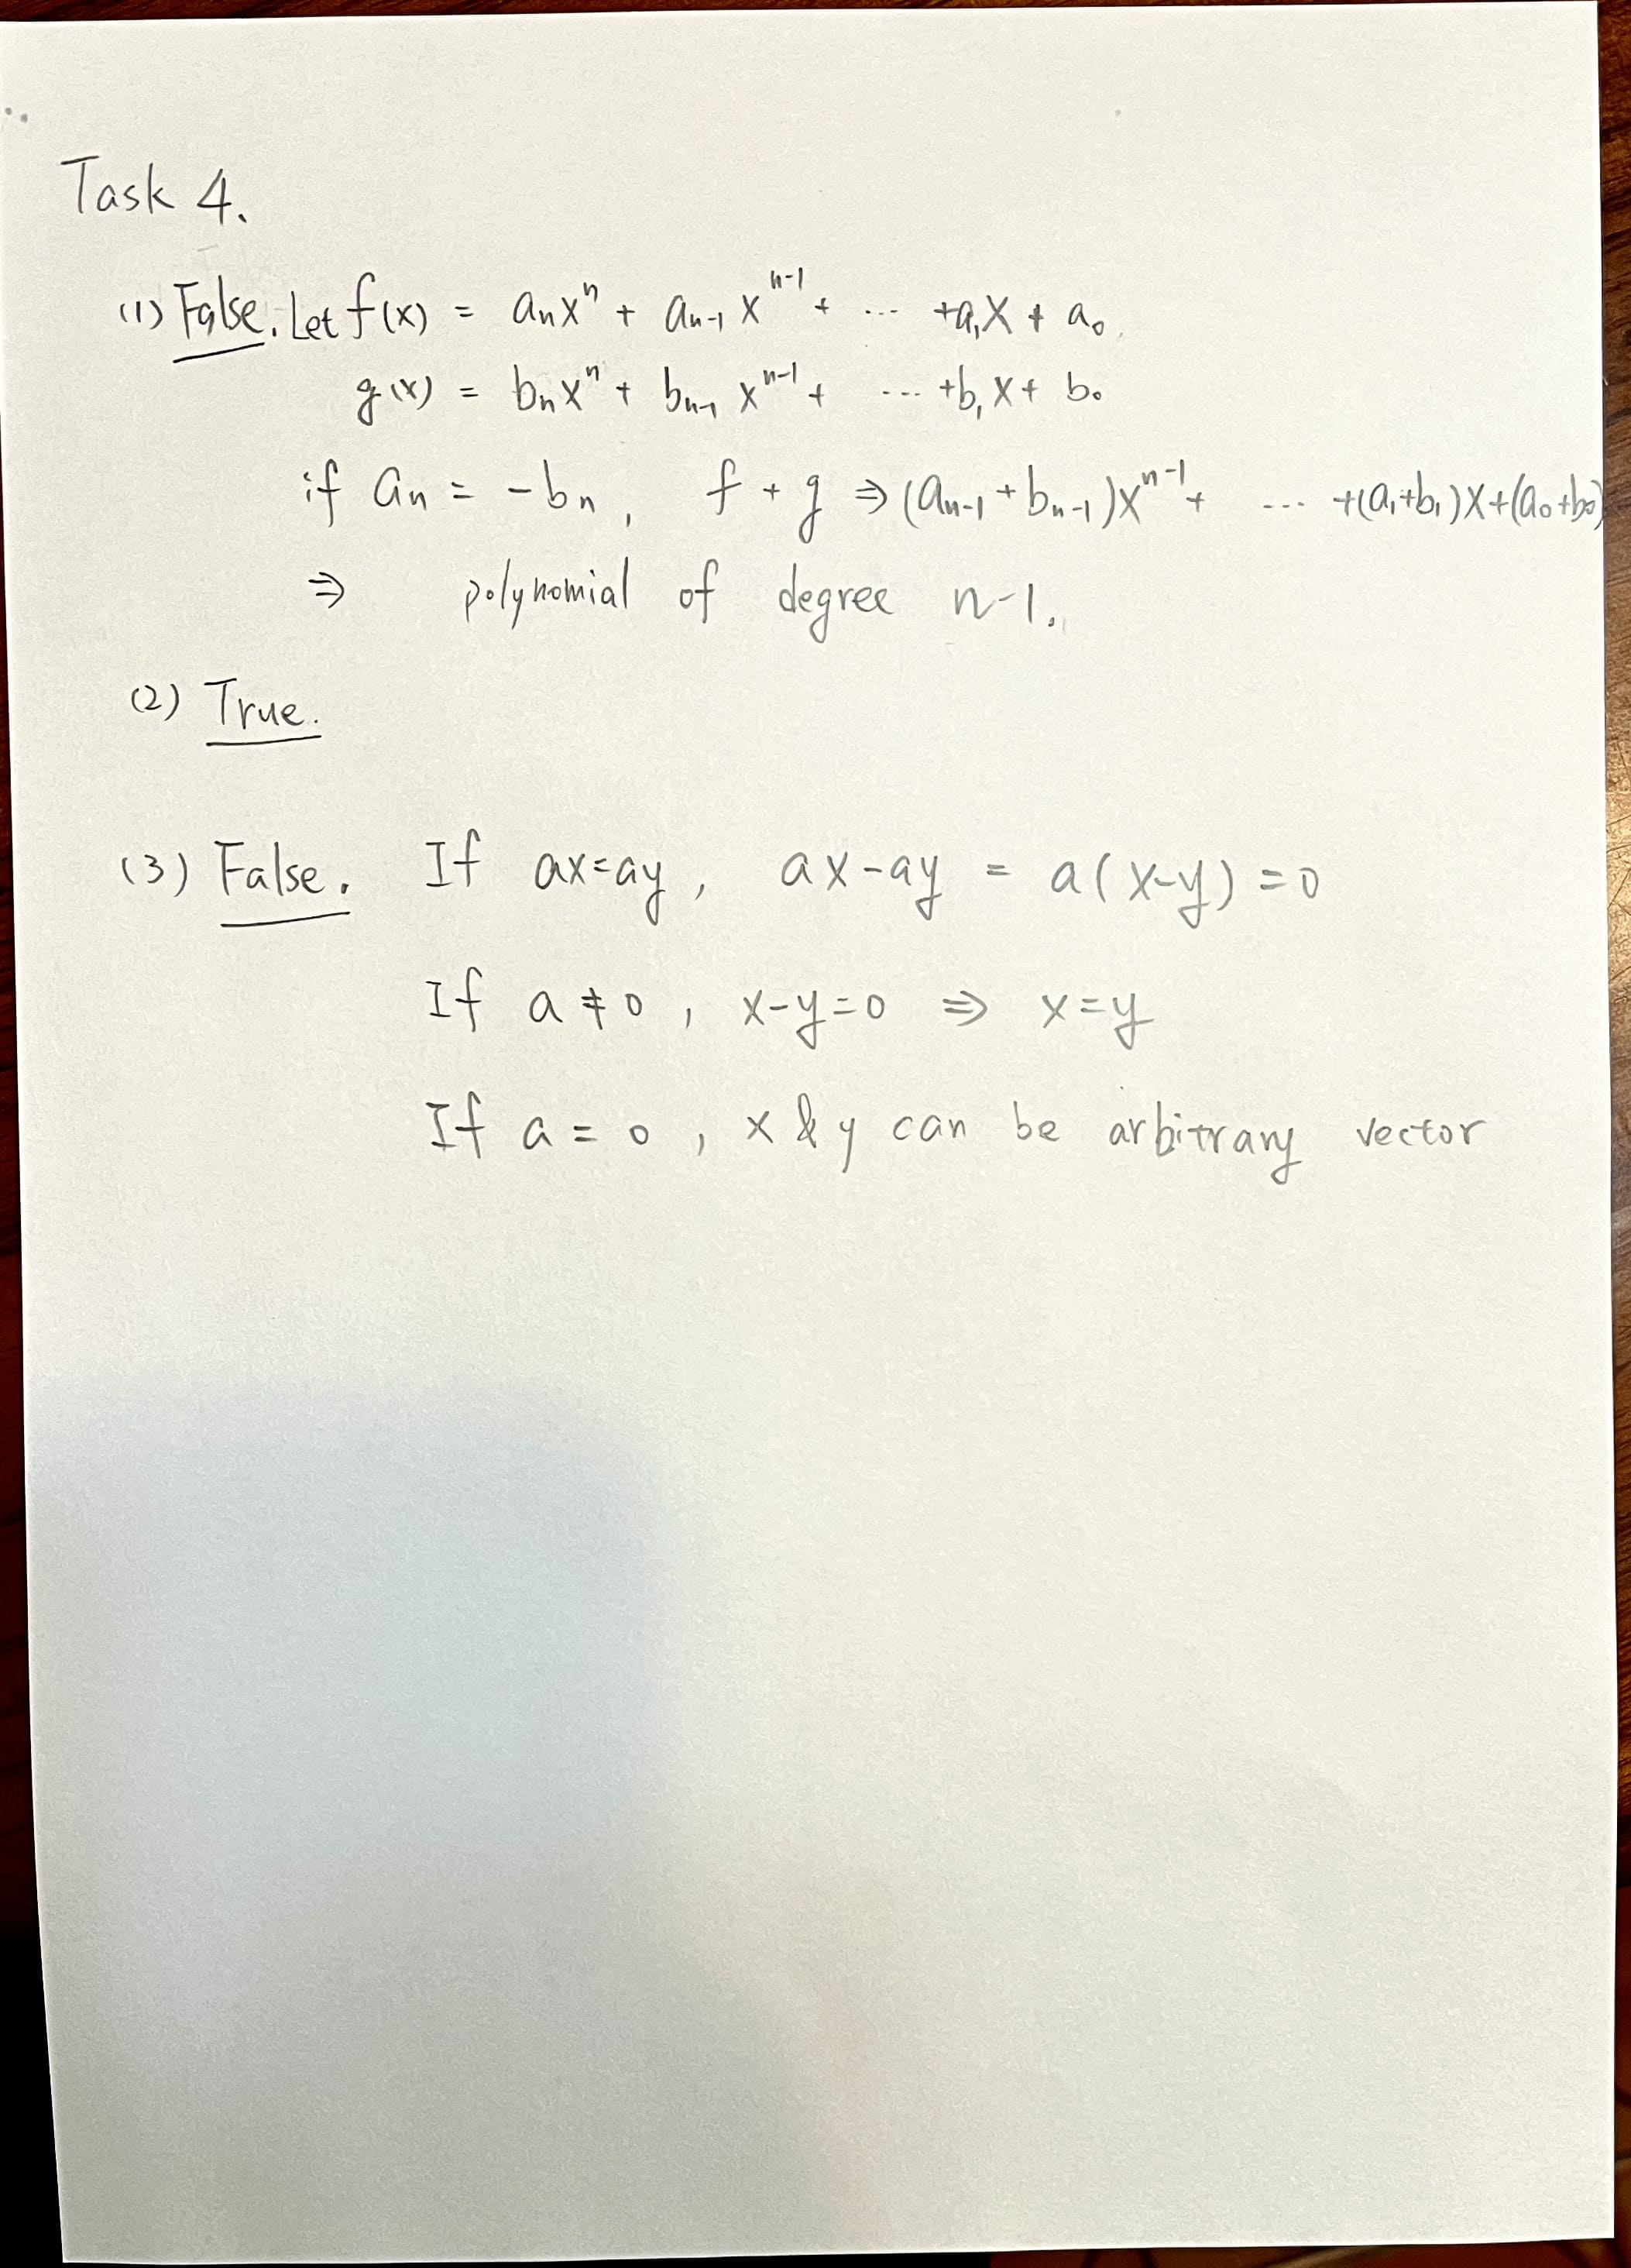 Task 4.
(1) False. Let f(x) = aₙxⁿ + aₙ₋₁xⁿ⁻¹ + ... + a₁x + a₀
g(x) = bₙxⁿ + bₙ₋₁xⁿ⁻¹ + ... + b₁x + b₀
if aₙ = -bₙ, f + g ⇒ (aₙ₋₁ + bₙ₋₁)xⁿ⁻¹ + ... + (a₁+b₁)x + (a₀+b₀)
⇒ polynomial of degree n-1.
(2) True.
(3) False. If ax=ay, ax-ay = a(x-y) = 0
If a ≠ 0, x-y=0 ⇒ x=y
If a = 0, x & y can be arbitrary vector